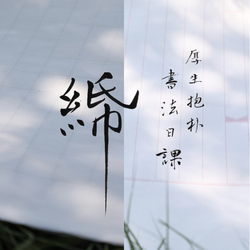 厚生抱朴
書法日課